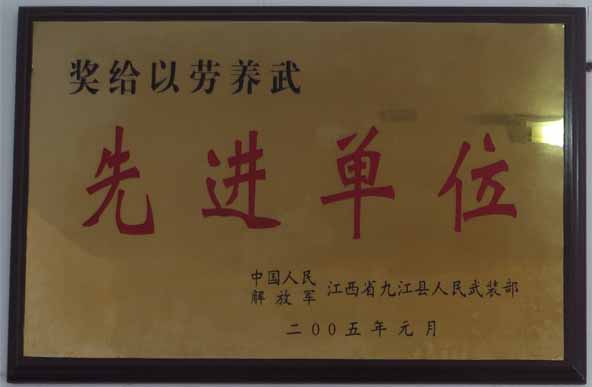 奖给以劳养武
先进单位
中国人民
解放军 江西省九江县人民武装部
二00五年元月